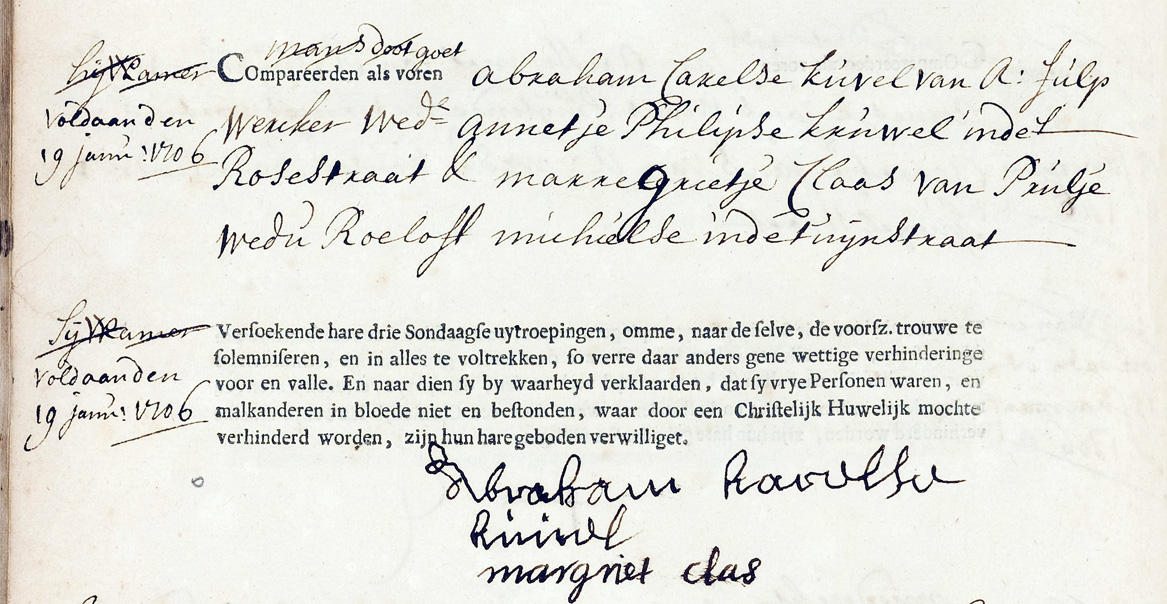 mans doot goet
Compareerden als voren abraham Carelse kuvel van A: Julp
Wercker Wed.e annetje Philipse kruwel indet
Rosestraat & marregrietje Claas van Prulje
wedu Roeloff michielse indetuijnstraat
Sij Kamer
voldaanden
19 janu: 1706
Versoekende hare drie Sondaagse uytroepingen, omme, naar de selve, de voorsz. trouwe te
solemniseren, en in alles te voltrekken, so verre daar anders gene wettige verhinderinge
voor en valle. En naar dien sy by waarheyd verklaarden, dat sy vrye Personen waren, en
malkanderen in bloede niet en bestonden, waar door een Christelijk Huwelijk mochte
verhinderd worden, zijn hun hare geboden verwilliget.
Sij Kamer
voldaanden
19 janu: 1706
Abraham karelse
kuivel
margriet clas